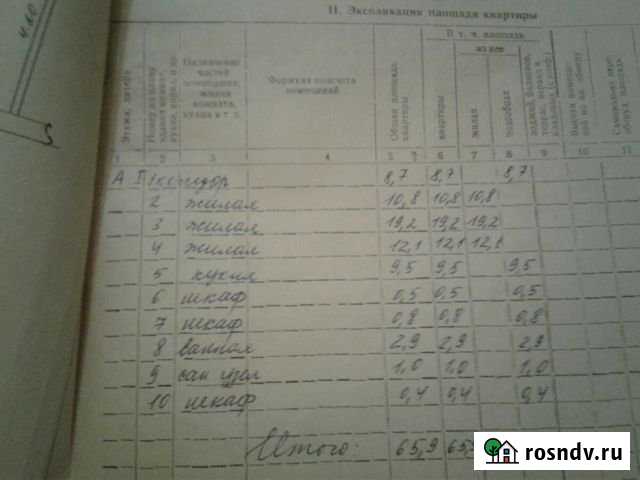 4.10
II. Экспликация площади квартиры
Этажи, литера
Назначение
частей
помещения:
жилая
комната,
кухня и т. д.
Формула подсчета
помещений
Общая площадь
квартиры
В т. ч. площадь
из нее
квартиры
жилая
подсобная
1 2 3 4 5 6 7 8 9 10 11
А I 1 коридор 8,7 8,7 8,7
2 жилая 10,8 10,8 10,8
3 жилая 19,2 19,2 19,2
4 жилая 12,1 12,1 12,1
5 кухня 9,5 9,5 9,5
6 шкаф 0,5 0,5 0,5
7 шкаф 0,8 0,8 0,8
8 ванная 2,9 2,9 2,9
9 сан узел 1,0 1,0 1,0
10 шкаф 0,4 0,4 0,4
Итого: 65,9
rosndv.ru